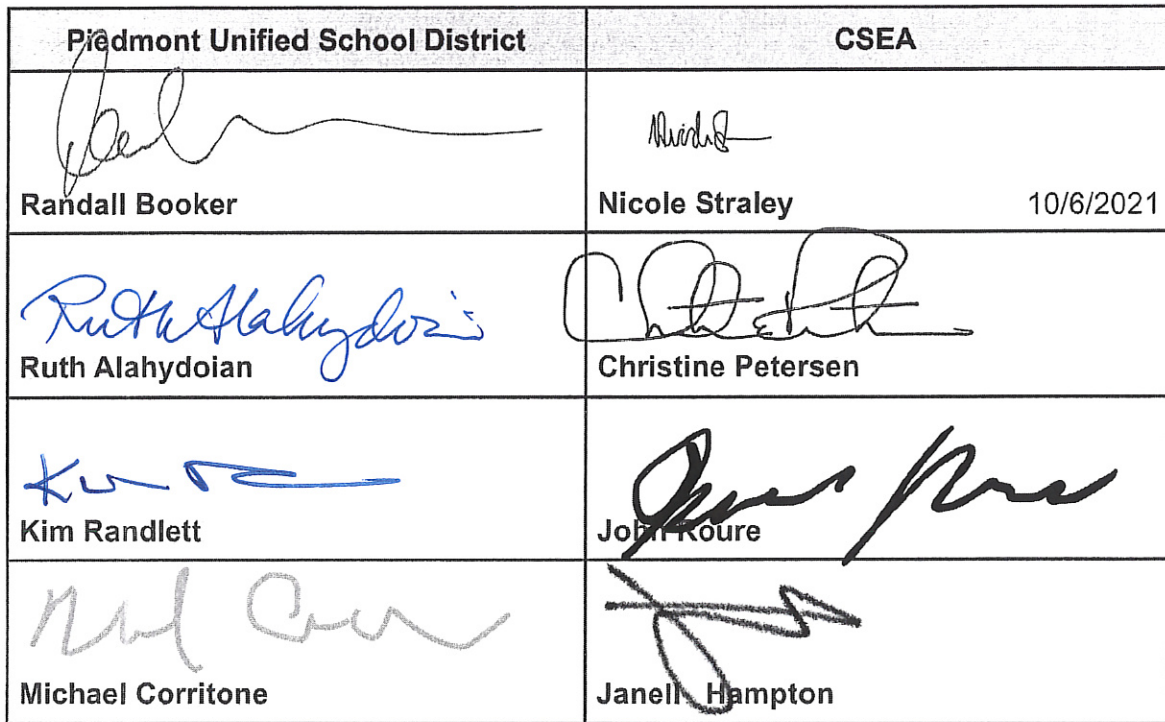 Piedmont Unified School District
CSEA
Randall Booker
Nicole Straley 10/6/2021
Ruth Alahydoian
Ruth Alahydoian
Christine Petersen
Kim Randlett
John Roure
Michael Corritone
Janell Hampton